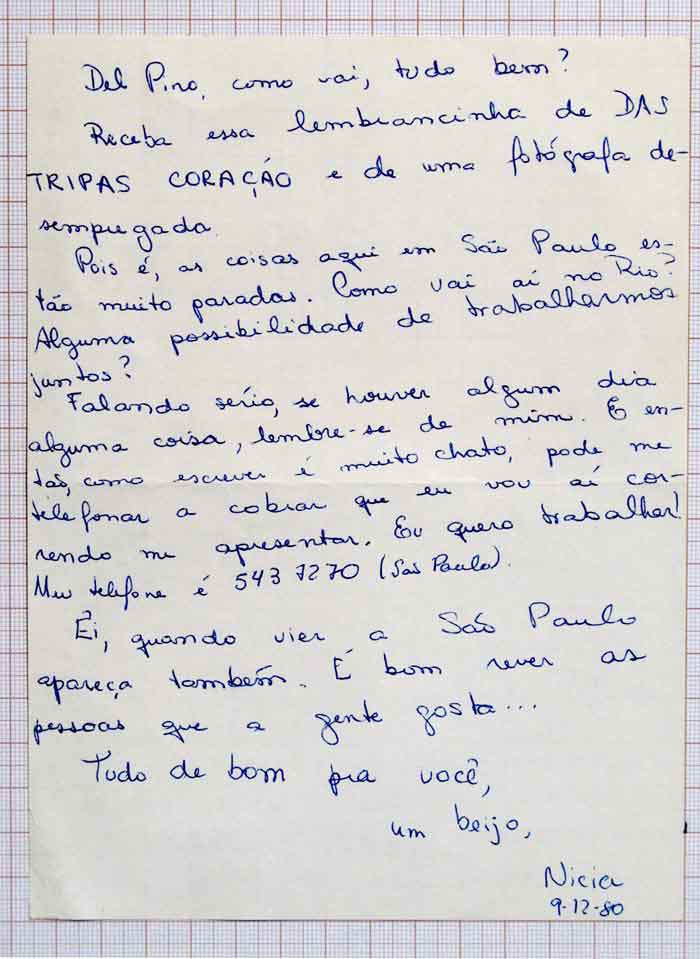 Del Pino, como vai, tudo bem?
Receba essa lembrancinha de DAS
TRIPAS CORAÇÃO e de uma fotógrafa de-
sempregada.
Pois é, as coisas aqui em São Paulo es-
tão muito paradas. Como vai aí no Rio?
Alguma possibilidade de trabalharmos
juntos?
Falando sério, se houver algum dia
alguma coisa, lembre-se de mim. E en-
tão, como escrever é muito chato, pode me
telefonar a cobrar que eu vou aí cor-
rendo me apresentar. Eu quero trabalhar!
Meu telefone é 543 7270 (São Paulo).
Ei, quando vier a São Paulo
apareça também. É bom rever as
pessoas que a gente gosta...
Tudo de bom pra você,
um beijo,
Nicia
9-12-80